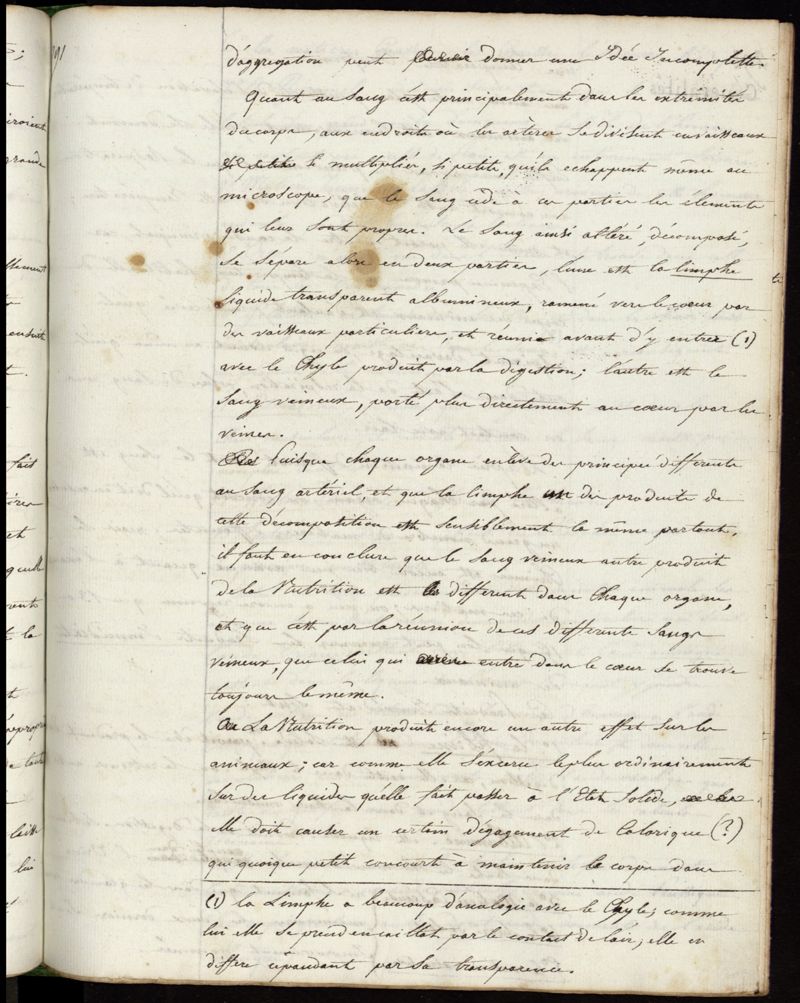 191
d'aggregation peut donner une Idée Incomplette.
Quant au Sang c'est principalement dans les extremités
du corps, aux endroits où les artères Se divisent en vaisseaux
se multiplier, si petits, qu'ils echappent même au
microscope, que le Sang cède à ces parties les élements
qui leur Sont propres. Le Sang ainsi altéré, décomposé,
Se Sépare alors en deux parties, l'une est la limphe
liquide transparent albumineux, ramené vers le cœur par
des vaisseaux particuliers, et réunie avant d'y entrer (1)
avec le Chyle produit par la digestion; l'autre est le
Sang veineux, porté plus directement au cœur par les
veines.
Puisque chaque organe enlève des principes differents
au Sang artériel, et que la limphe un des produits de
cette décomposition est sensiblement la même partout,
il faut en conclure que le Sang veineux autre produit
de la Nutrition est different dans Chaque organe,
et que c'est par la réunion de ces differents Sangs
veineux, que celui qui entre dans le cœur se trouve
toujours le même.
La Nutrition produit encore un autre effet Sur les
animaux; car comme elle S'exerce le plus ordinairement
Sur des liquides qu'elle fait passer à l'Etat Solide,
elle doit causer un certain dégagement de Calorique (?)
qui quoique petit concourt à maintenir le corps dans
(1) la Limphe a beaucoup d'analogie avec le Chyle; comme
lui elle Se prend en caillot par le contact de l'air; elle en
differe cependant par Sa transparence.